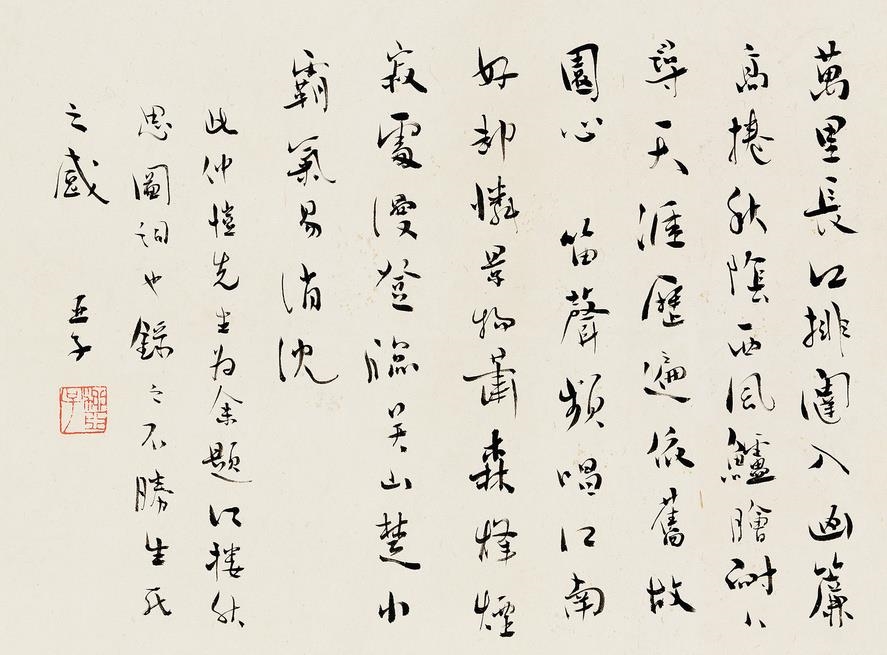 萬里長江排闥入画簾
高捲秋陰西風鱸膾耐人
尋天涯歷遍依舊故
園心 笛聲頻唱江南
好却憐景物蕭森烽煙
寂處漫登臨吳山楚水
霸氣易消沈
此仲愷先生為余題江樓秋
思圖詞也錄之不勝生死
之感 亞子
柳亞子